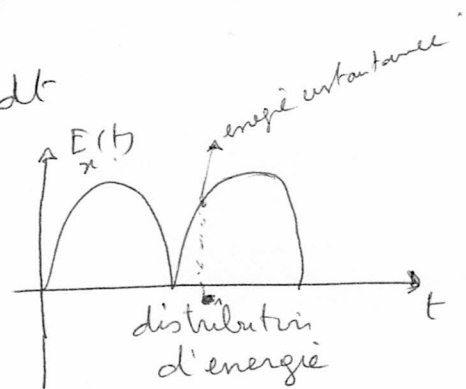 dt
E_x(t)
energie instantanée
t
distribution
d'energie